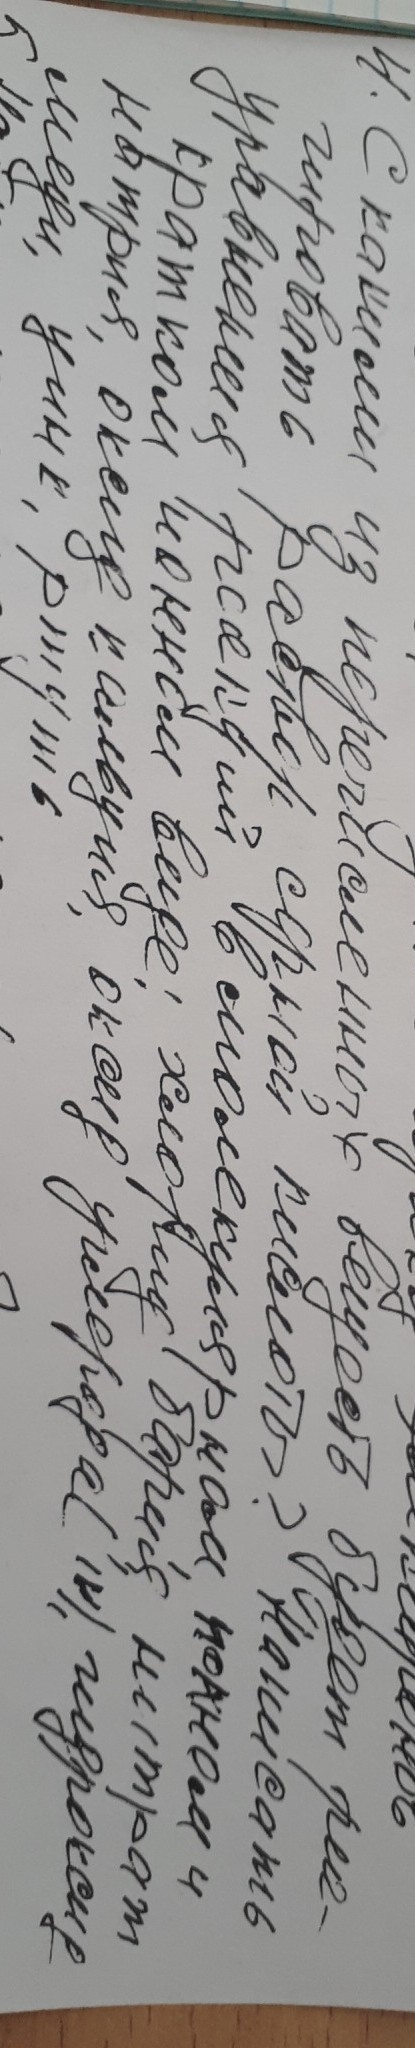 4. С какими из перечисленных веществ будет реа-
гировать раствор серной кислоты? Написать
уравнения реакций в молекулярном полном и
кратком ионном виде: хлорид бария, нитрат
натрия, оксид кальция, оксид углерода (IV), гидроксид
меди, цинк, ртуть